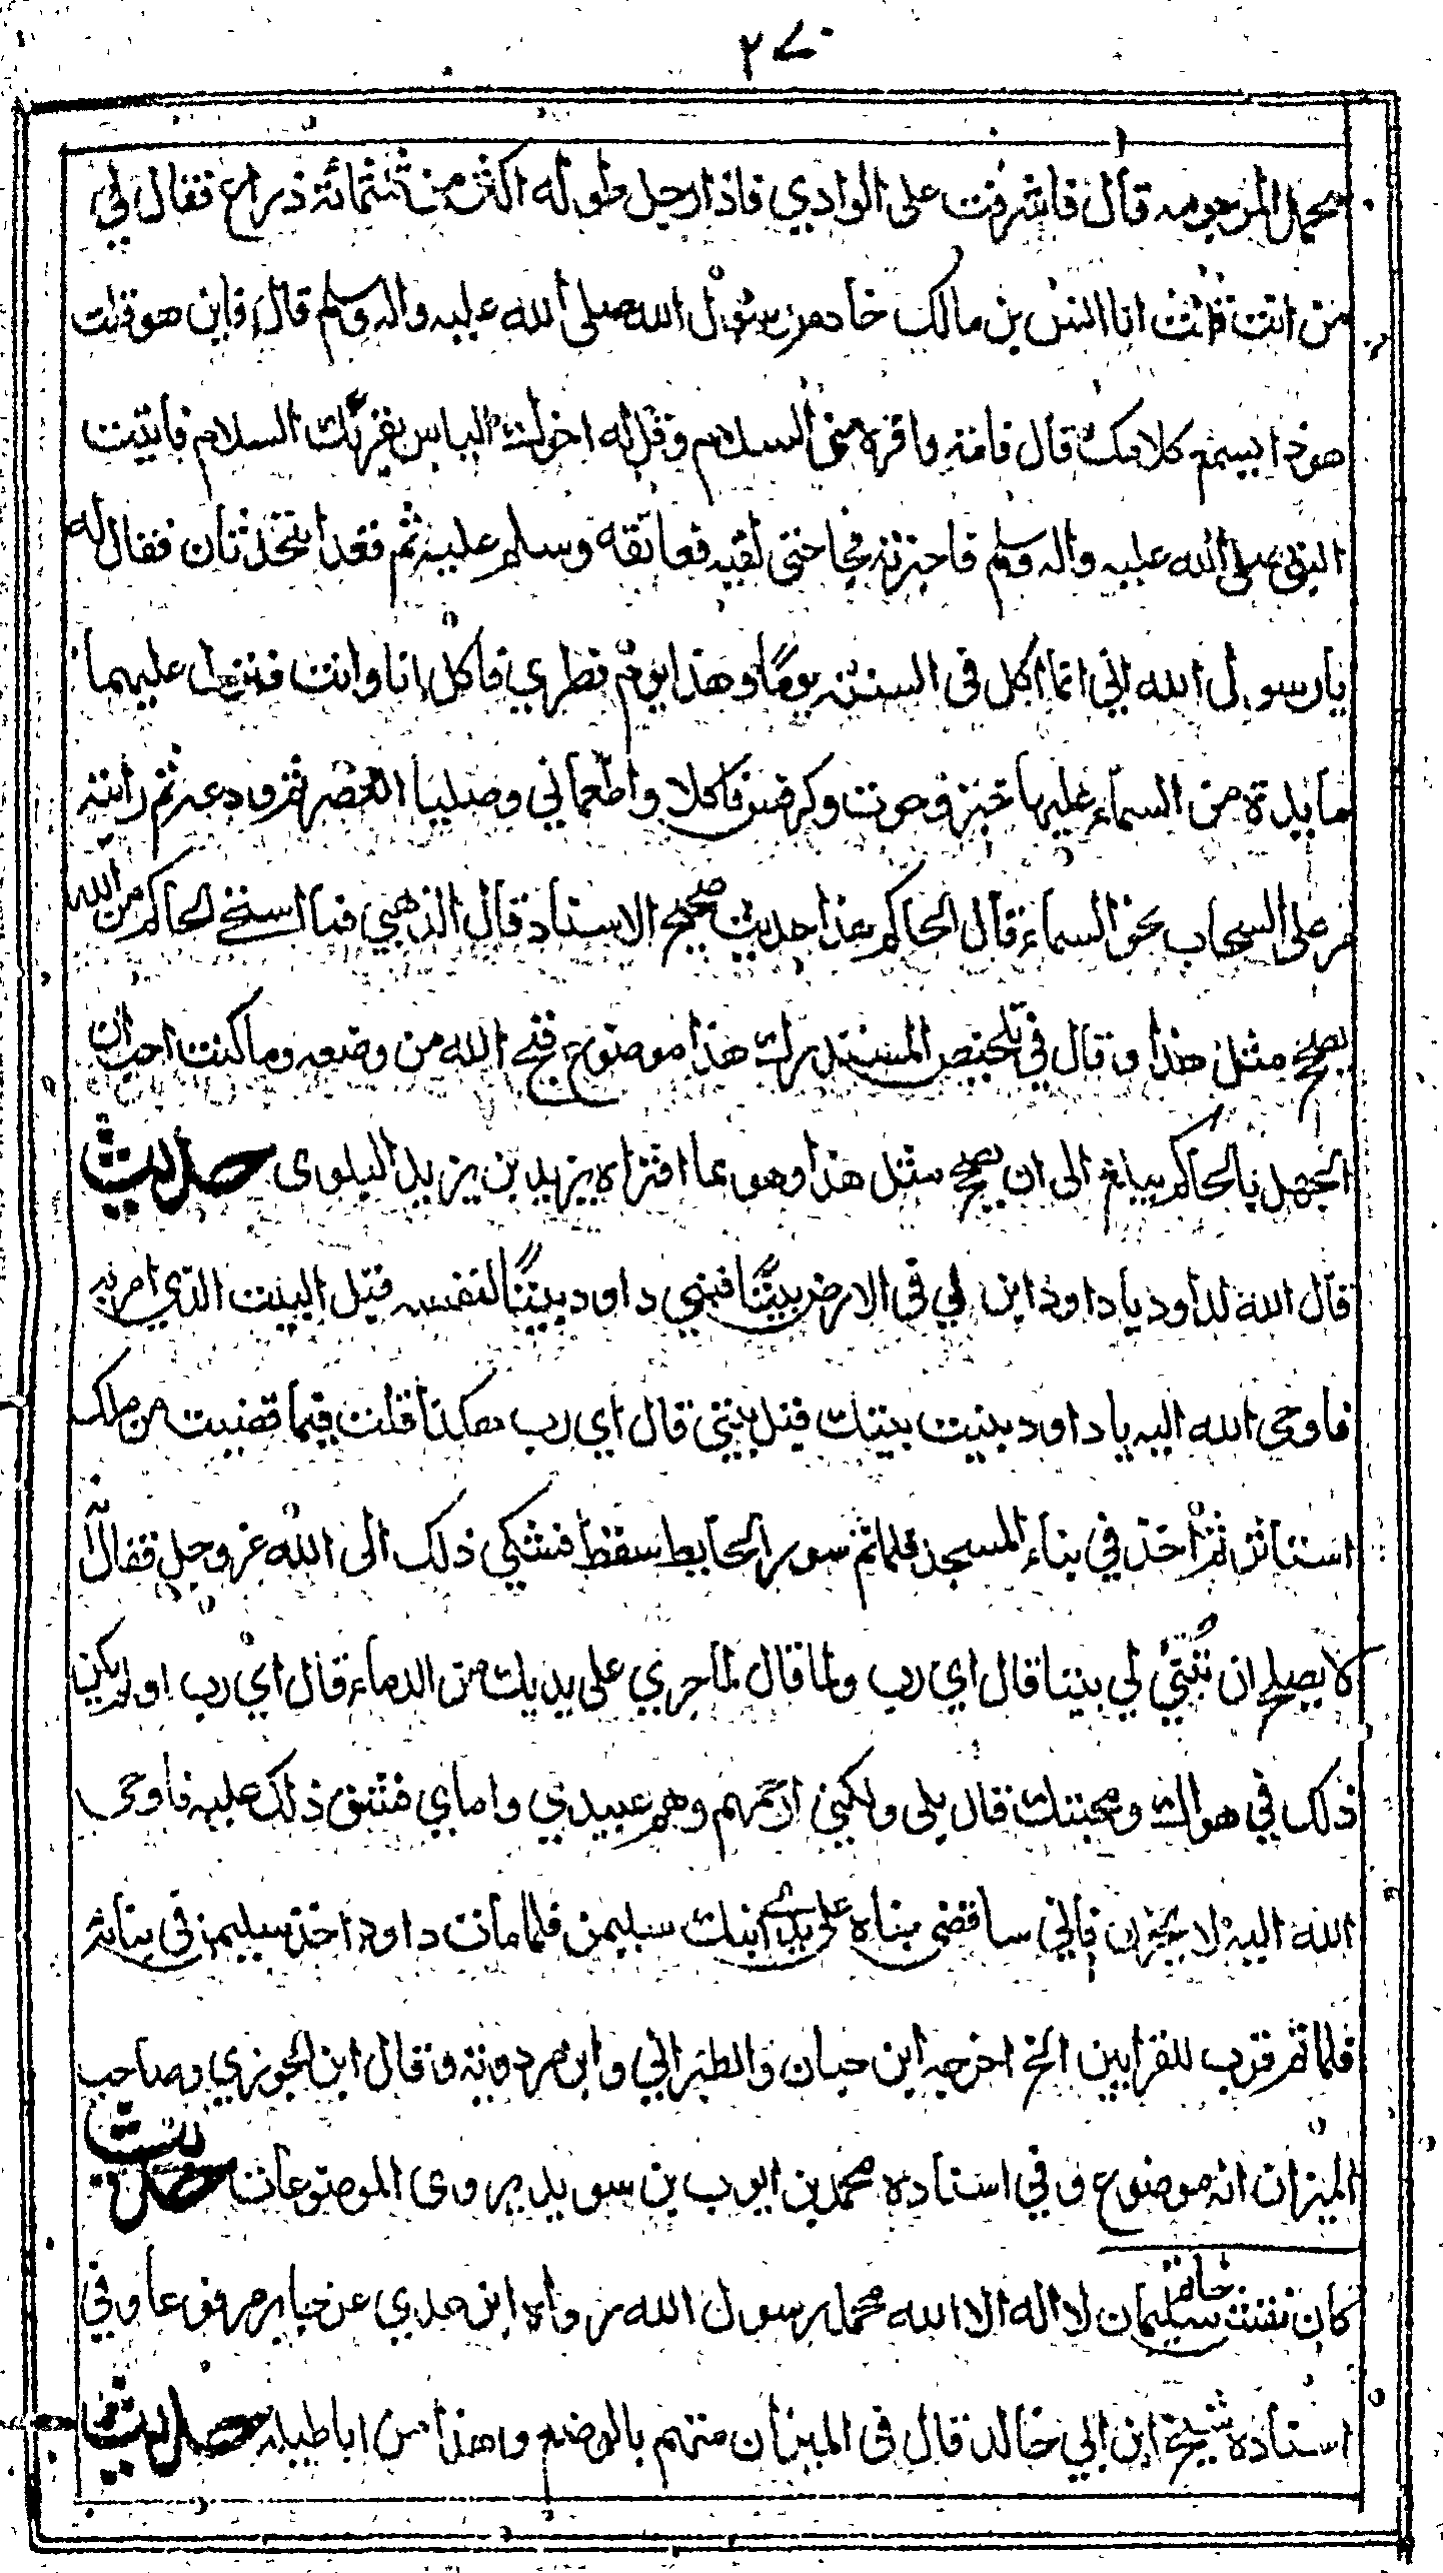 محمد المرحومه قال فاشرفت على الوادي فاذا رجل طوله اكثر من ثلثمائة ذراع فقال لي
من انت قلت انا انس بن مالك خادم رسول الله صلى الله عليه واله وسلم قال فاين هو قلت
هوذا يسمع كلامك قال فاته واقره مني السلام وقل له اخوك الياس يقرئك السلام فاتيت
النبي صلى الله عليه واله وسلم فاخبرته فجا حتى لقيه فعانقه وسلم عليه ثم قعدا يتحدثان فقال له
يا رسول الله اني انما اكل في السنة يوما وهذا يوم فطري فاكل انا وانت فنزل عليهما
مايدة من السماء عليها خبز وحوت وكرفس فاكلا واطعماني وصلينا العصر ثم ودعه ثم رايته
مر على السحاب نحو السماء قال الحاكم هذا حديث صحيح الاسناد قال الذهبي فما استحي الحاكم من الله
يصحح مثل هذا وقال في تلخيص المستدرك هذا موضوع قبح الله من وضعه وما كنت احب ان
الجهل بالحاكم يبلغ الى ان يصحح مثل هذا وهو مما افتراه يزيد بن يزيد البلوى حديث
قال الله لداود يا داود ابن لي في الارض بيتا فبنى داود بيتا لنفسه قبل البيت الذي امر به
فاوحى الله اليه يا داود بنيت بيتك قبل بيتي قال اي رب هكذا قلت فيما قضيت من ملك
استاثر ثم اخذ في بناء المسجد فلما تم سور الحايط سقط فشكي ذلك الى الله عز وجل فقال ا
لا يصلح ان تبنى لي بيتا قال اي رب ولما قال لما جري على يديك من الدماء قال اي رب اولم يكن
ذلك في هواك ومحبتك قال بلى ولكني ارحمهم وهم عبيدي واماي فشق ذلك عليه فاوحى
الله اليه لا تحزن فاني ساقضي بناه على يدي ابنك سليمن فلما مات داود اخذ سليمن في بنائه
فلما تم قرب للقرابين الخ اخرجه ابن حبان والطبراني وابن مردويه وقال ابن الجوزي وصاحب
الميزان انه موضوع وفي اسناده محمد بن ايوب بن سويد يروى الموضوعات حديث
كان نقش خاتم سليمان لا اله الا الله محمد رسول الله رواه ابن عدي عن جابر مرفوعا وفي
اسناده شيخ ابن ابي خالد قال في الميزان متهم بالوضع وهذا من اباطيله حديث